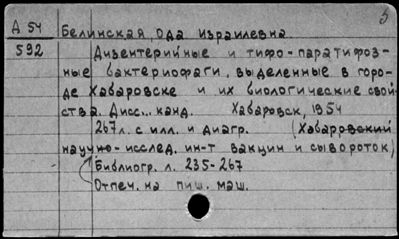 5
А 54 Белинская, Ода Израилевна
592 Дизентерийные и тифо-паратифоз-
ные бактериофаги, выделенные в горо-
де Хабаровске и их биологические свой-
ства. Дисс... канд. Хабаровск, 1954
267 л. с илл. и диагр. (Хабаровский
научно-исслед. ин-т вакцин и сывороток)
Библиогр. л. 235-267
Отпеч. на пиш. маш.